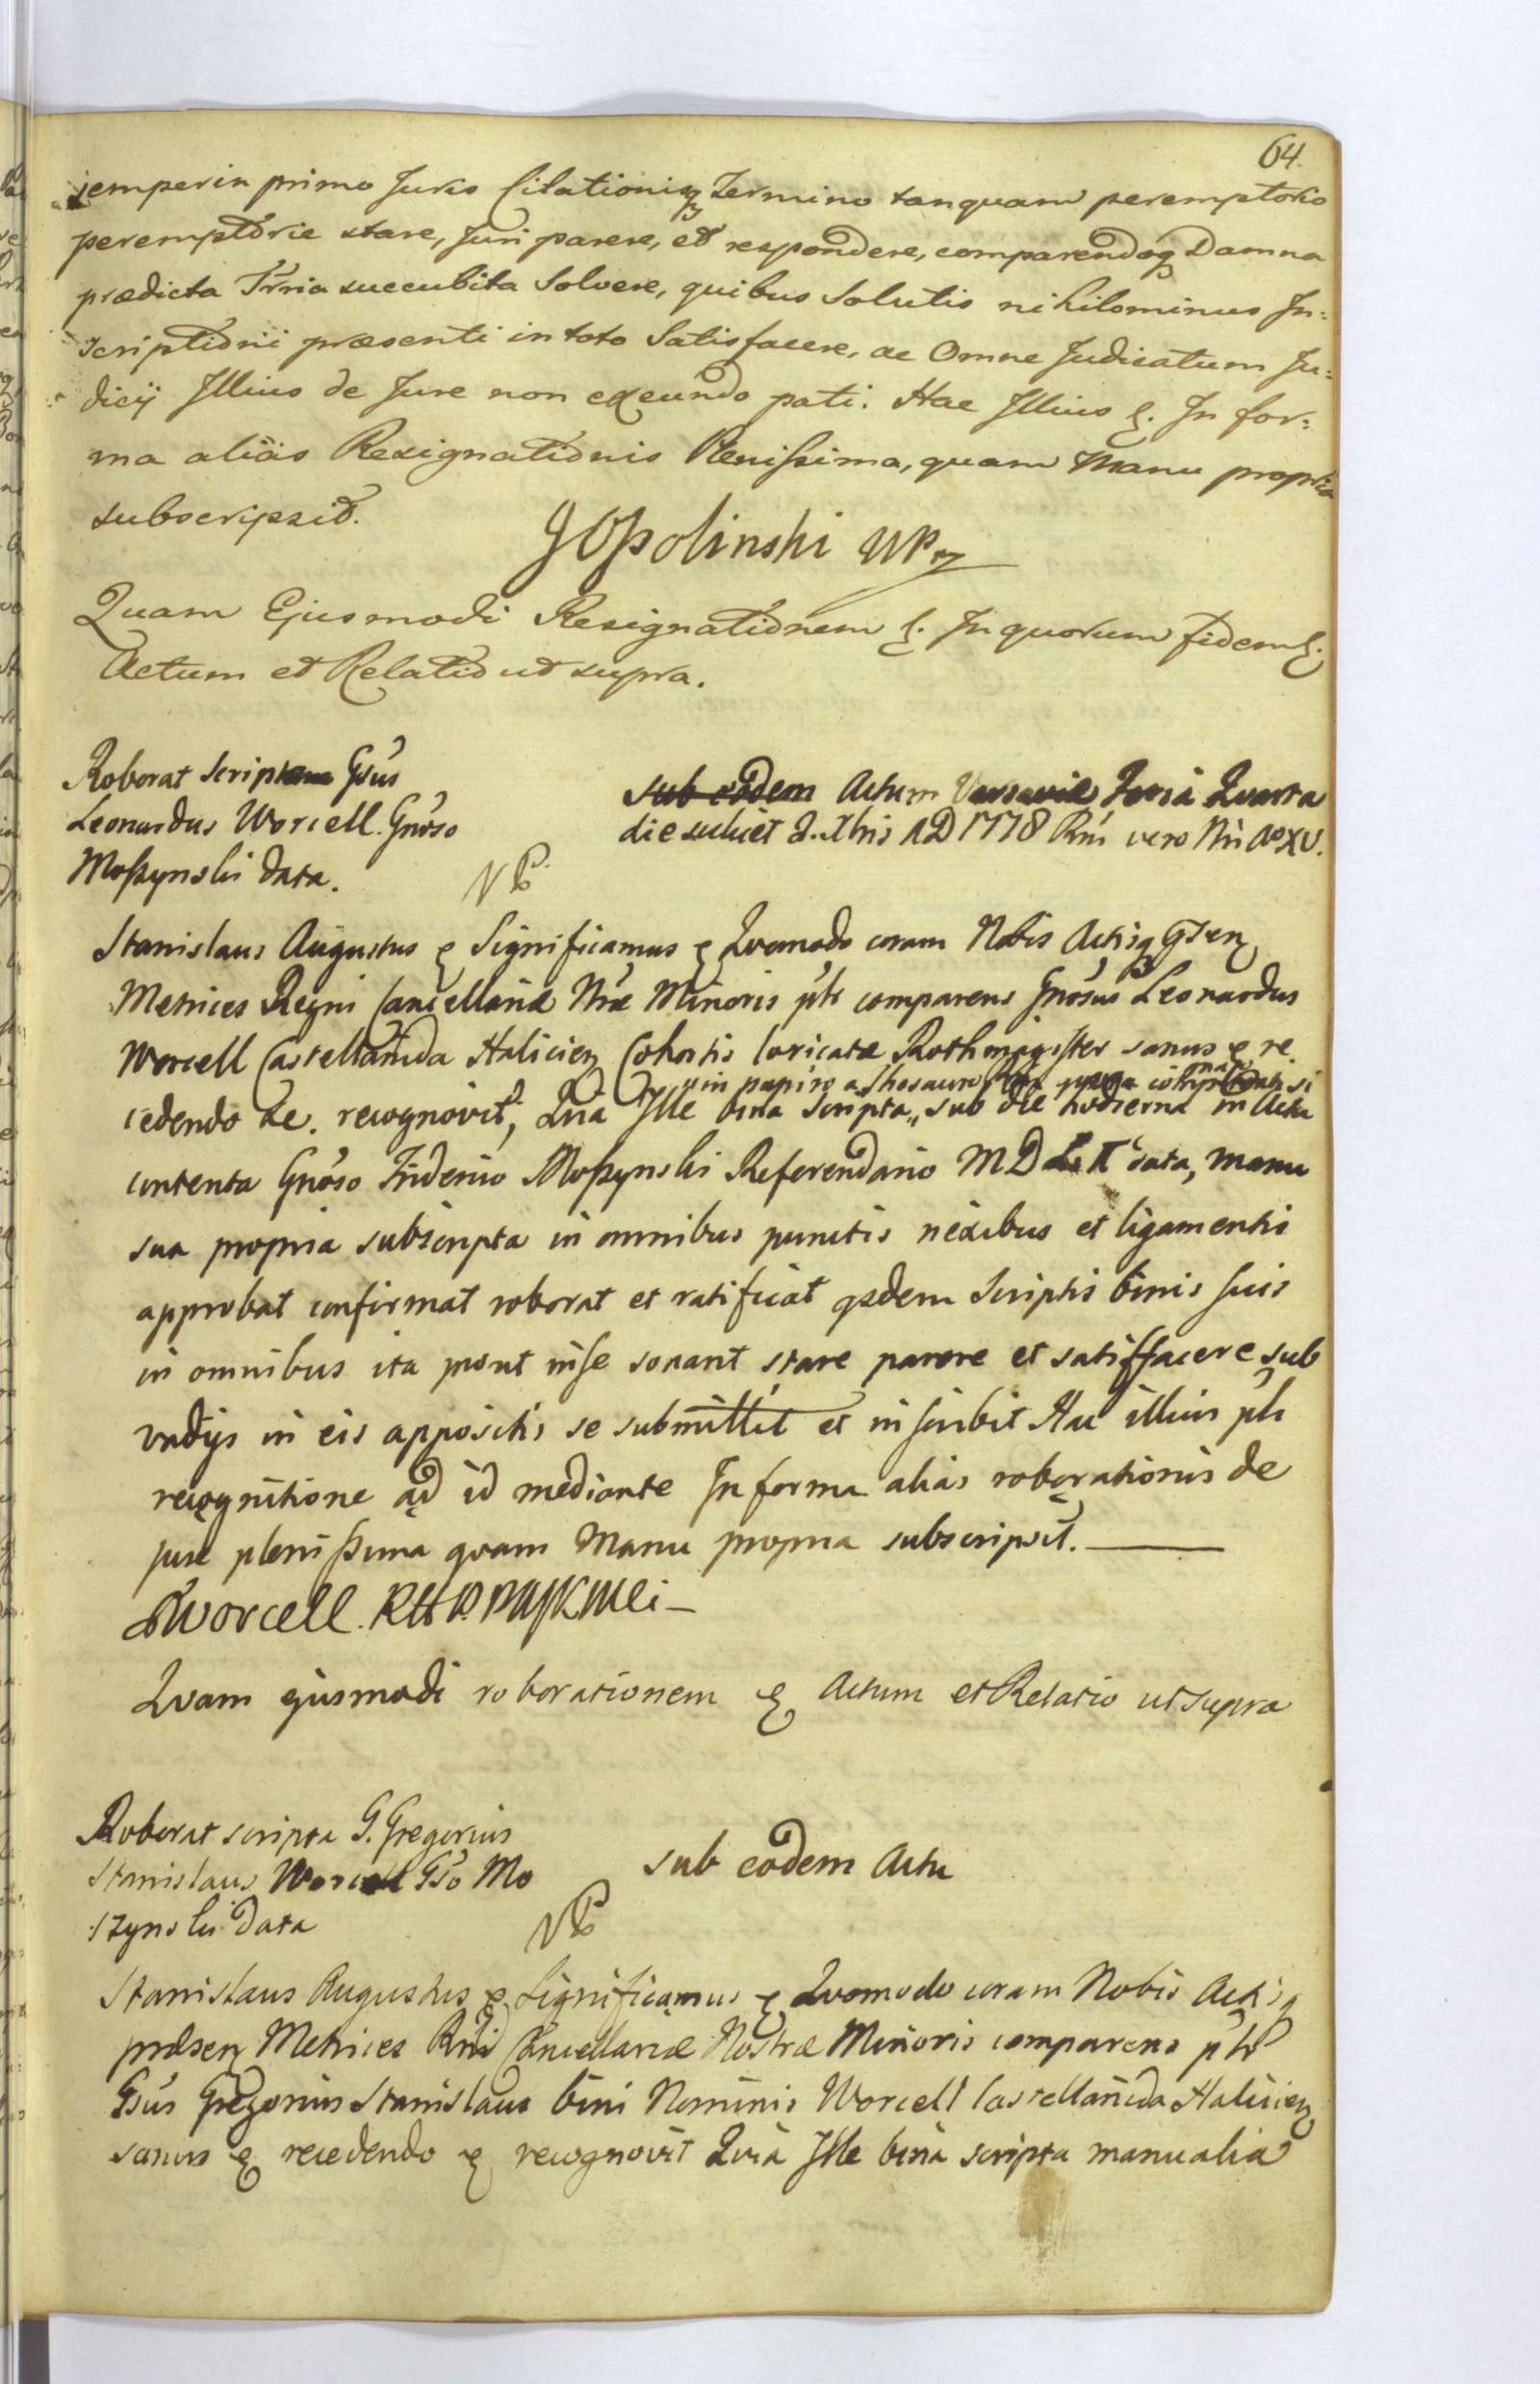 64.
semper in primo Juris Citationisq Termino tanquam peremptorio
peremptorie stare, Juri parere, et respondere, comparendoq Damna
prædicta Trria succubita Solvere, quibus Solutis nihilominus In:
scriptioni præsenti in toto Satisfacere, ac Omne Judicatum Ju:
dicij Illius de Jure non exeundo pati. Hac Illius &. In for:
ma aliäs Resignationis Plenissima, quam Manu propria
subscripsit.
JOpolinski mp
Quam Ejusmodi Resignationem &. In quorum fidem &.
Actum et Relatio ut supra.
Roborat Scripta Gsus
Leonardus Worcell. Gnoso
Moszynski data.
sub eodem Actum Varsaviæ Feria Quarta
die scilicet 2. Xbris AD 1778 Rni vero Nri Ao XV.
Stanislaus Augustus & Significamus & Quomodo coram Nobis Actisq Gsen
Metrices Regni Cancellariæ Nræ Minoris plr comparens Gnosus Leonardus
Worcell Castellanida Halicien Cohortis loricatæ Rothmagister sanus & re
in papiro a Thesauro
cedendo &c. recognovit, Quia Ille bina Scripta sub die hodierna in Acta
contenta Gnoso Friderico Moszynski Referendario MDL data, manu
sua propria subscripta in omnibus punctis nexibus et ligamentis
approbat confirmat roborat et ratificat qsdem Scriptis binis suis
in omnibus ita prout in se sonant stare parere et satisfacere sub
vadijs in eis appositis se submittit et inscribit Hac illius plr
recognitione ad id mediante In forma alias roborationis de
jure plenissima quam Manu propria subscripsit.
LWorcell.
Quam ejusmodi roborationem & Actum et Relatio ut supra
Roborat scripta G. Gregorius
Stanislaus Worcell Gso Mo
szynski data
sub eodem Actu
Stanislaus Augustus & Significamus & Quomodo coram Nobis Actisq
præsen Metrices Rni Cancellariæ Nostræ Minoris comparens plr
Gsus Gregorius Stanislaus bini Nominis Worcell Castellanida Halicien
sanus & recedendo & recognovit Quia Ille bina scripta manualia